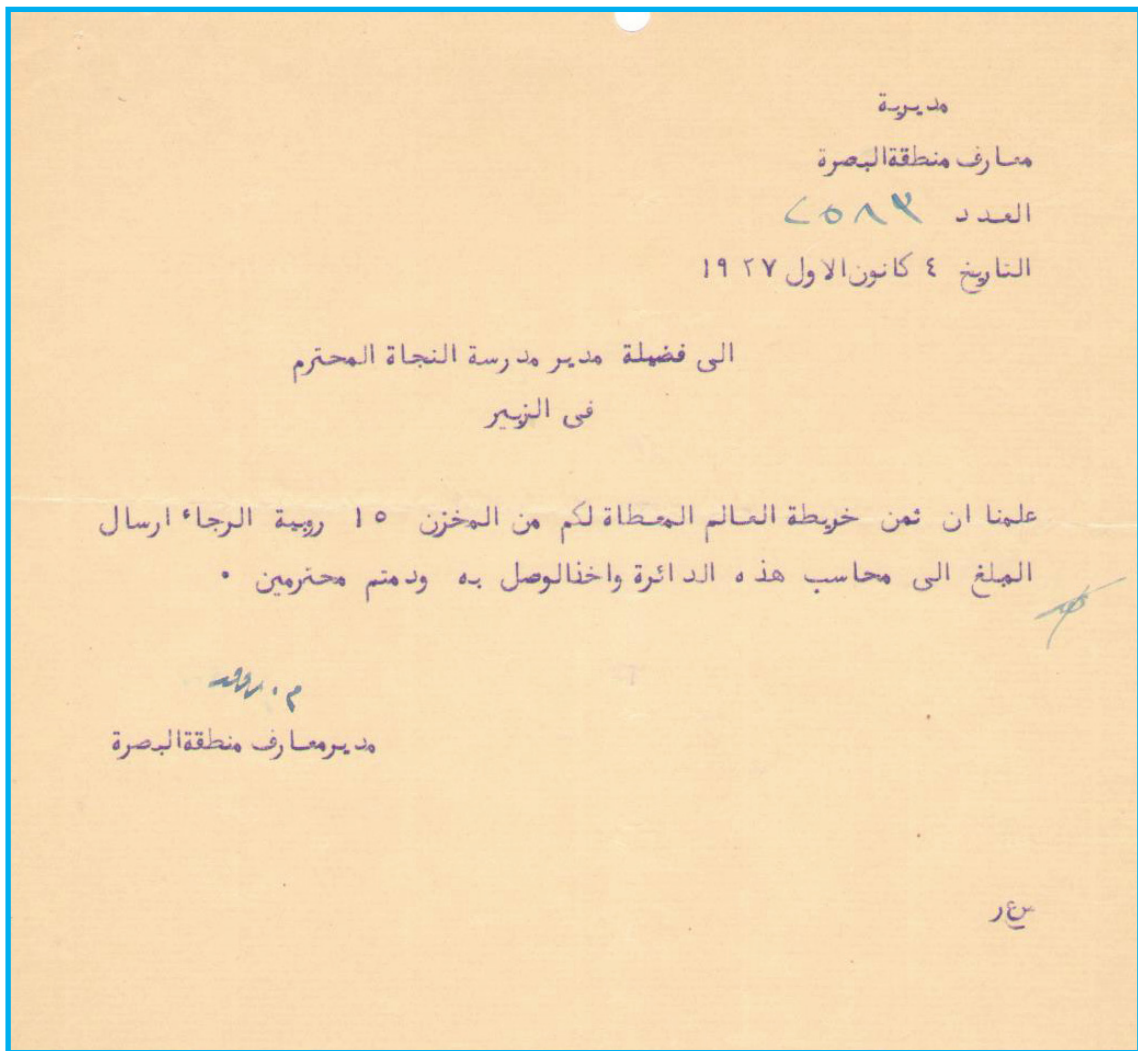 مديرية
معارف منطقة البصرة
العدد ٢٥٨٣
التاريخ ٤ كانون الاول ١٩٢٧
الى فضيلة مدير مدرسة النجاة المحترم
في الزبير
علمنا ان ثمن خريطة العالم المعطاة لكم من المخزن ١٥ روبية الرجاء ارسال
المبلغ الى محاسب هذه الدائرة واخذ الوصل به ودمتم محترمين ٠
مدير معارف منطقة البصرة